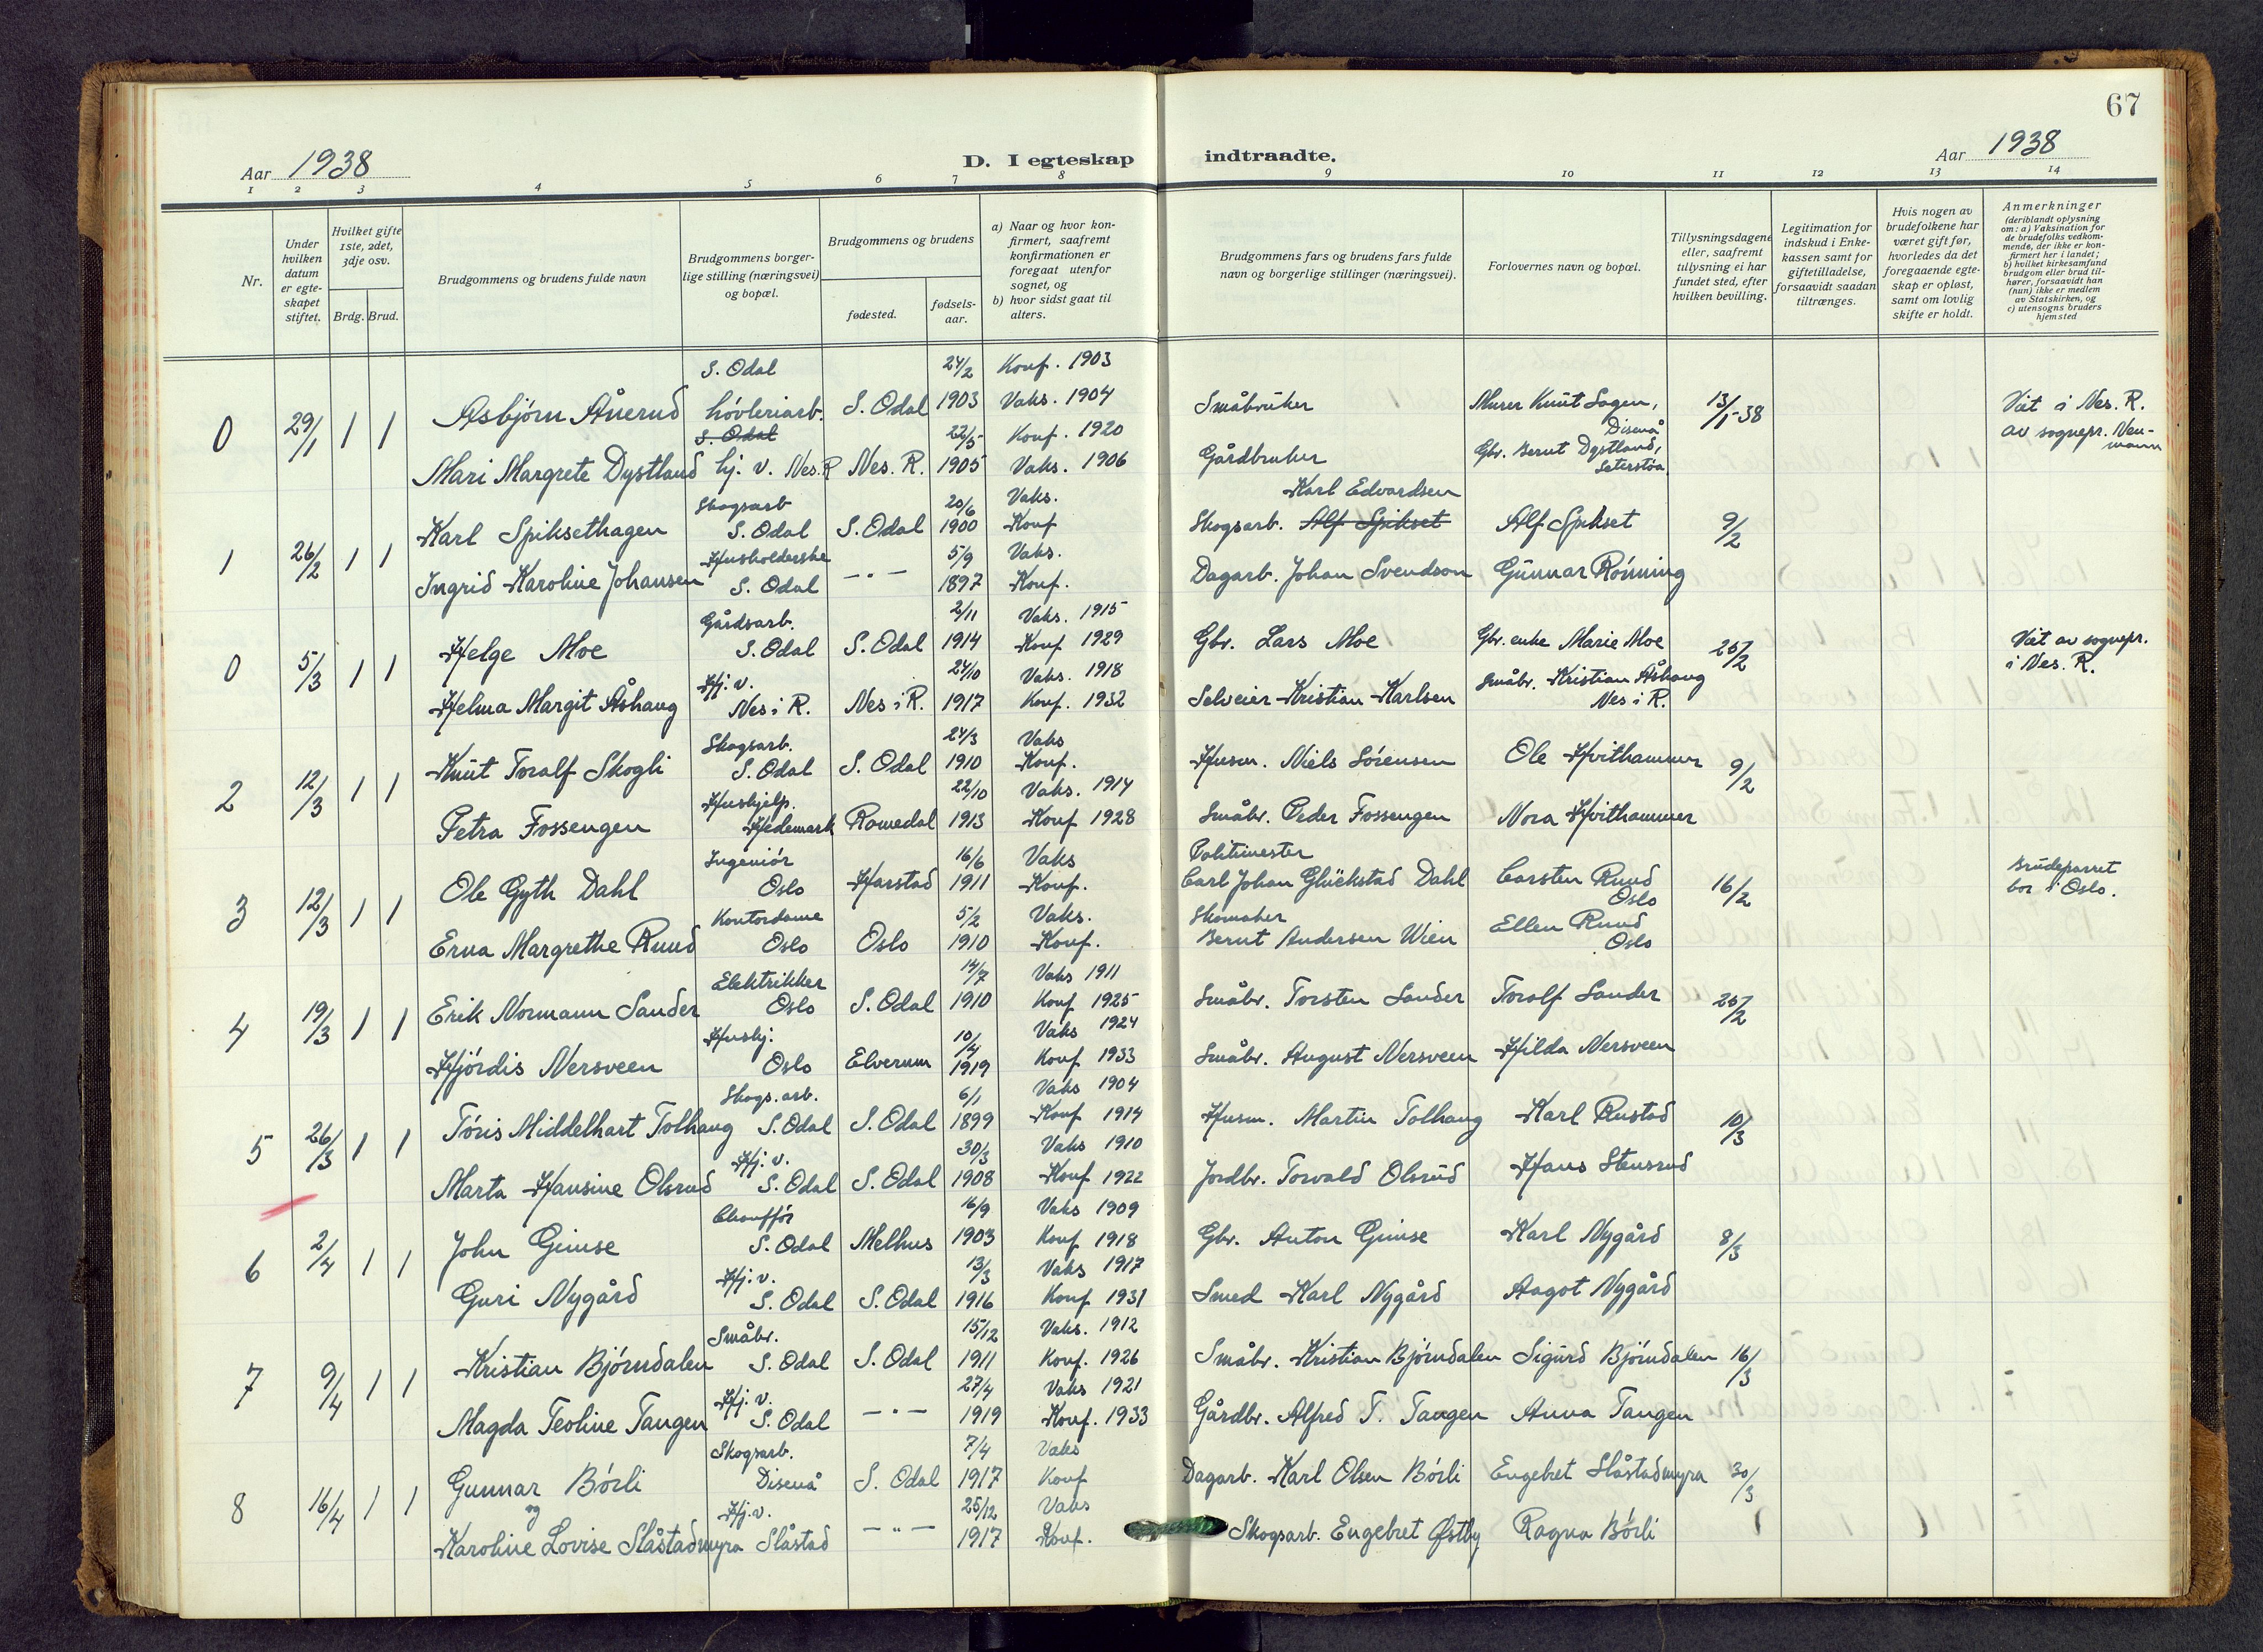 67
Aar 1938
D. I egteskap indtraadte.
Aar 1938
1 2 3 4 5 6 7 8 9 10 11 12 13 14
Nr.
Under hvilken datum er egteskapet stiftet.
Hvilket gifte 1ste, 2det, 3dje osv.
Brdg. Brud.
Brudgommens og brudens fulde navn
Brudgommens borgerlige stilling (næringsvei) og bopæl.
Brudgommens og brudens
fødested.
fødselsaar.
a) Naar og hvor konfirmert, saafremt konfirmationen er foregaat utenfor sognet, og
b) hvor sidst gaat til alters.
Brudgommens fars og brudens fars fulde navn og borgerlige stillinger (næringsvei).
Forlovernes navn og bopæl.
Tillysningsdagene eller, saafremt tillysning ei har fundet sted, efter hvilken bevilling.
Legitimation for indskud i Enkekassen samt for giftetilladelse, forsaavidt saadan tiltrænges.
Hvis nogen av brudefolkene har været gift før, hvorledes da det foregaaende egteskap er opløst, samt om lovlig skifte er holdt.
Anmerkninger (deriblandt oplysning om: a) Vaksination for de brudefolks vedkommende, der ikke er konfirmert her i landet; b) hvilket kirkesamfund brudgom eller brud tilhører, forsaavidt han (hun) ikke er medlem av Statskirken, og c) utensogns bruders hjemsted
0 29/1 1 1 Asbjørn Ånerud S. Odal høvleriarb. S. Odal 24/2 1903 Konf. 1903 Vaks. 1904 Småbruker Murer Knut Sagen, Disenå 13/1-38 Viet i Nes. R. av sognepr. Neumann
Mari Margrete Dystland S. Odal hj. v. Nes. R Nes. R. 22/5 1905 Konf. 1920 Vaks. 1906 Gårdbruker Gbr. Bernt Dystland, Seterstøa
1 26/2 1 1 Karl Spiksethagen Skogsarb S. Odal S. Odal 20/6 1900 Vaks. Konf Skogsarb. Alf Spikset Karl Edvardsen Alf Spikset 9/2
Ingrid Karoline Johansen Husholderske S. Odal — " — 5/9 1897 Vaks. Konf. Dagarb. Johan Svendsen Gunnar Rønning
0 5/3 1 1 Helge Moe Gårdsarb. S. Odal S. Odal 2/11 1914 Vaks. 1915 Konf 1929 Gbr. Lars Moe Gbr. enke Marie Moe 25/2 Viet av sognepr. i Nes. R.
Helma Margit Åshaug Hj. v. Nes i R. Nes i R. 24/10 1917 Vaks. 1918 Konf. 1932 Selveier Kristian Karlsen Småbr. Kristian Åshaug Nes i R.
2 12/3 1 1 Knut Toralf Skogli Skogsarb. S. Odal S. Odal 24/3 1910 Vaks Konf. Husm. Niels Sørensen Ole Hvithammer 9/2
Petra Fossengen Hushjelp. Hedemark Romedal 22/10 1913 Vaks. 1914 Konf 1928 Småbr. Peder Fossengen Nora Hvithammer
3 12/3 1 1 Ole Gyth Dahl Ingeniør Oslo Harstad 16/6 1911 Vaks Konf. Politimester Carl Johan Glückstad Dahl Carsten Ruud Oslo 16/2 Brudeparret bor i Oslo.
Erna Margrethe Ruud Kontordame Oslo Oslo 5/2 1910 Vaks. Konf. Skomaker Bernt Andersen Wien Ellen Ruud Oslo
4 19/3 1 1 Erik Normann Sander Elektrikker Oslo S. Odal 14/7 1910 Vaks 1911 Konf 1925 Småbr. Torsten Sander Toralf Sander 25/2
Hjørdis Nersveen Hushj. Oslo Elverum 10/4 1919 Vaks 1924 Konf 1933 Småbr. August Nersveen Hilda Nersveen
5 26/3 1 1 Tøris Middelhart Tolhaug Skogs. arb. S. Odal S. Odal 6/1 1899 Vaks 1904 Konf 1914 Husm. Martin Tolhaug Karl Rustad 10/3
Marta Hansine Olsrud Hj. v. S. Odal S. Odal 30/3 1908 Vaks 1910 Konf 1922 Jordbr. Torvald Olsrud Hans Stensrud
6 2/4 1 1 John Gimse Chauffør S. Odal Melhus 16/9 1903 Vaks 1909 Konf 1918 Gbr. Anton Gimse Karl Nygård 8/3
Guri Nygård Hj. v. S. Odal S. Odal 13/3 1916 Vaks 1917 Konf 1931 Smed Karl Nygård Aagot Nygård
7 9/4 1 1 Kristian Bjørndalen Småbr. S. Odal S. Odal 15/12 1911 Vaks. 1912 Konf. 1926 Småbr. Kristian Bjørndalen Sigurd Bjørndalen 16/3
Magda Teoline Tangen Hj. v. S. Odal — " — 27/4 1919 Vaks 1921 Konf. 1933 Gårdbr. Alfred T. Tangen Anna Tangen
8 16/4 1 1 Gunnar Børli Skogsarb. Disenå S. Odal 7/4 1917 Vaks Konf Dagarb. Karl Olsen Børli Engebret Slåstadmyra 30/3
og
Karoline Lovise Slåstadmyra Hj. v. Slåstad — " — 25/12 1917 Vaks Konf. Skogsarb. Engebret Østby Ragna Børli